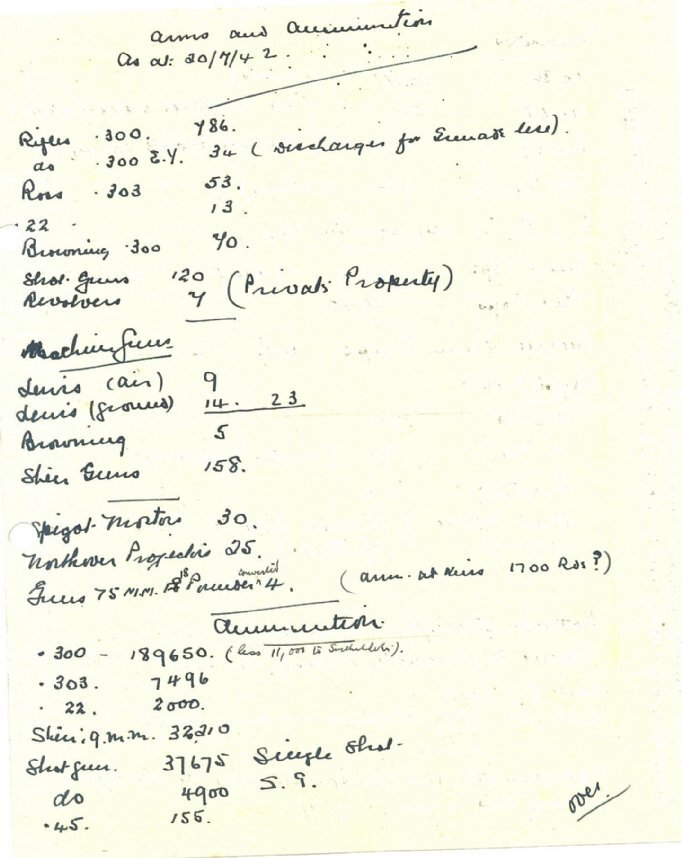 Arms and Ammunition
As at: 20/7/42.
Rifles .300. 786.
do .300 E.Y. 34 (Discharges for Grenade Use).
Ross .303 53.
.22 13.
Browning .300 40.
Shot-Guns 120
Revolvers 7 (Private Property)
Machine Guns
Lewis (air) 9
Lewis (ground) 14. 23
Browning 5
Sten Guns 158.
Spigot-Mortors 30.
Northover Projectors 25.
converted
Guns 75 M.M. 18 Pounder 4. (amm. at 1700 Rds?)
Ammunition
.300 - 189650. (less 11,000 to).
.303. 7496
.22. 2000.
Sten: 9.m.m. 32210
Shotgun. 37675 Single Shot-
do 4900 S.G.
.45. 155.
over